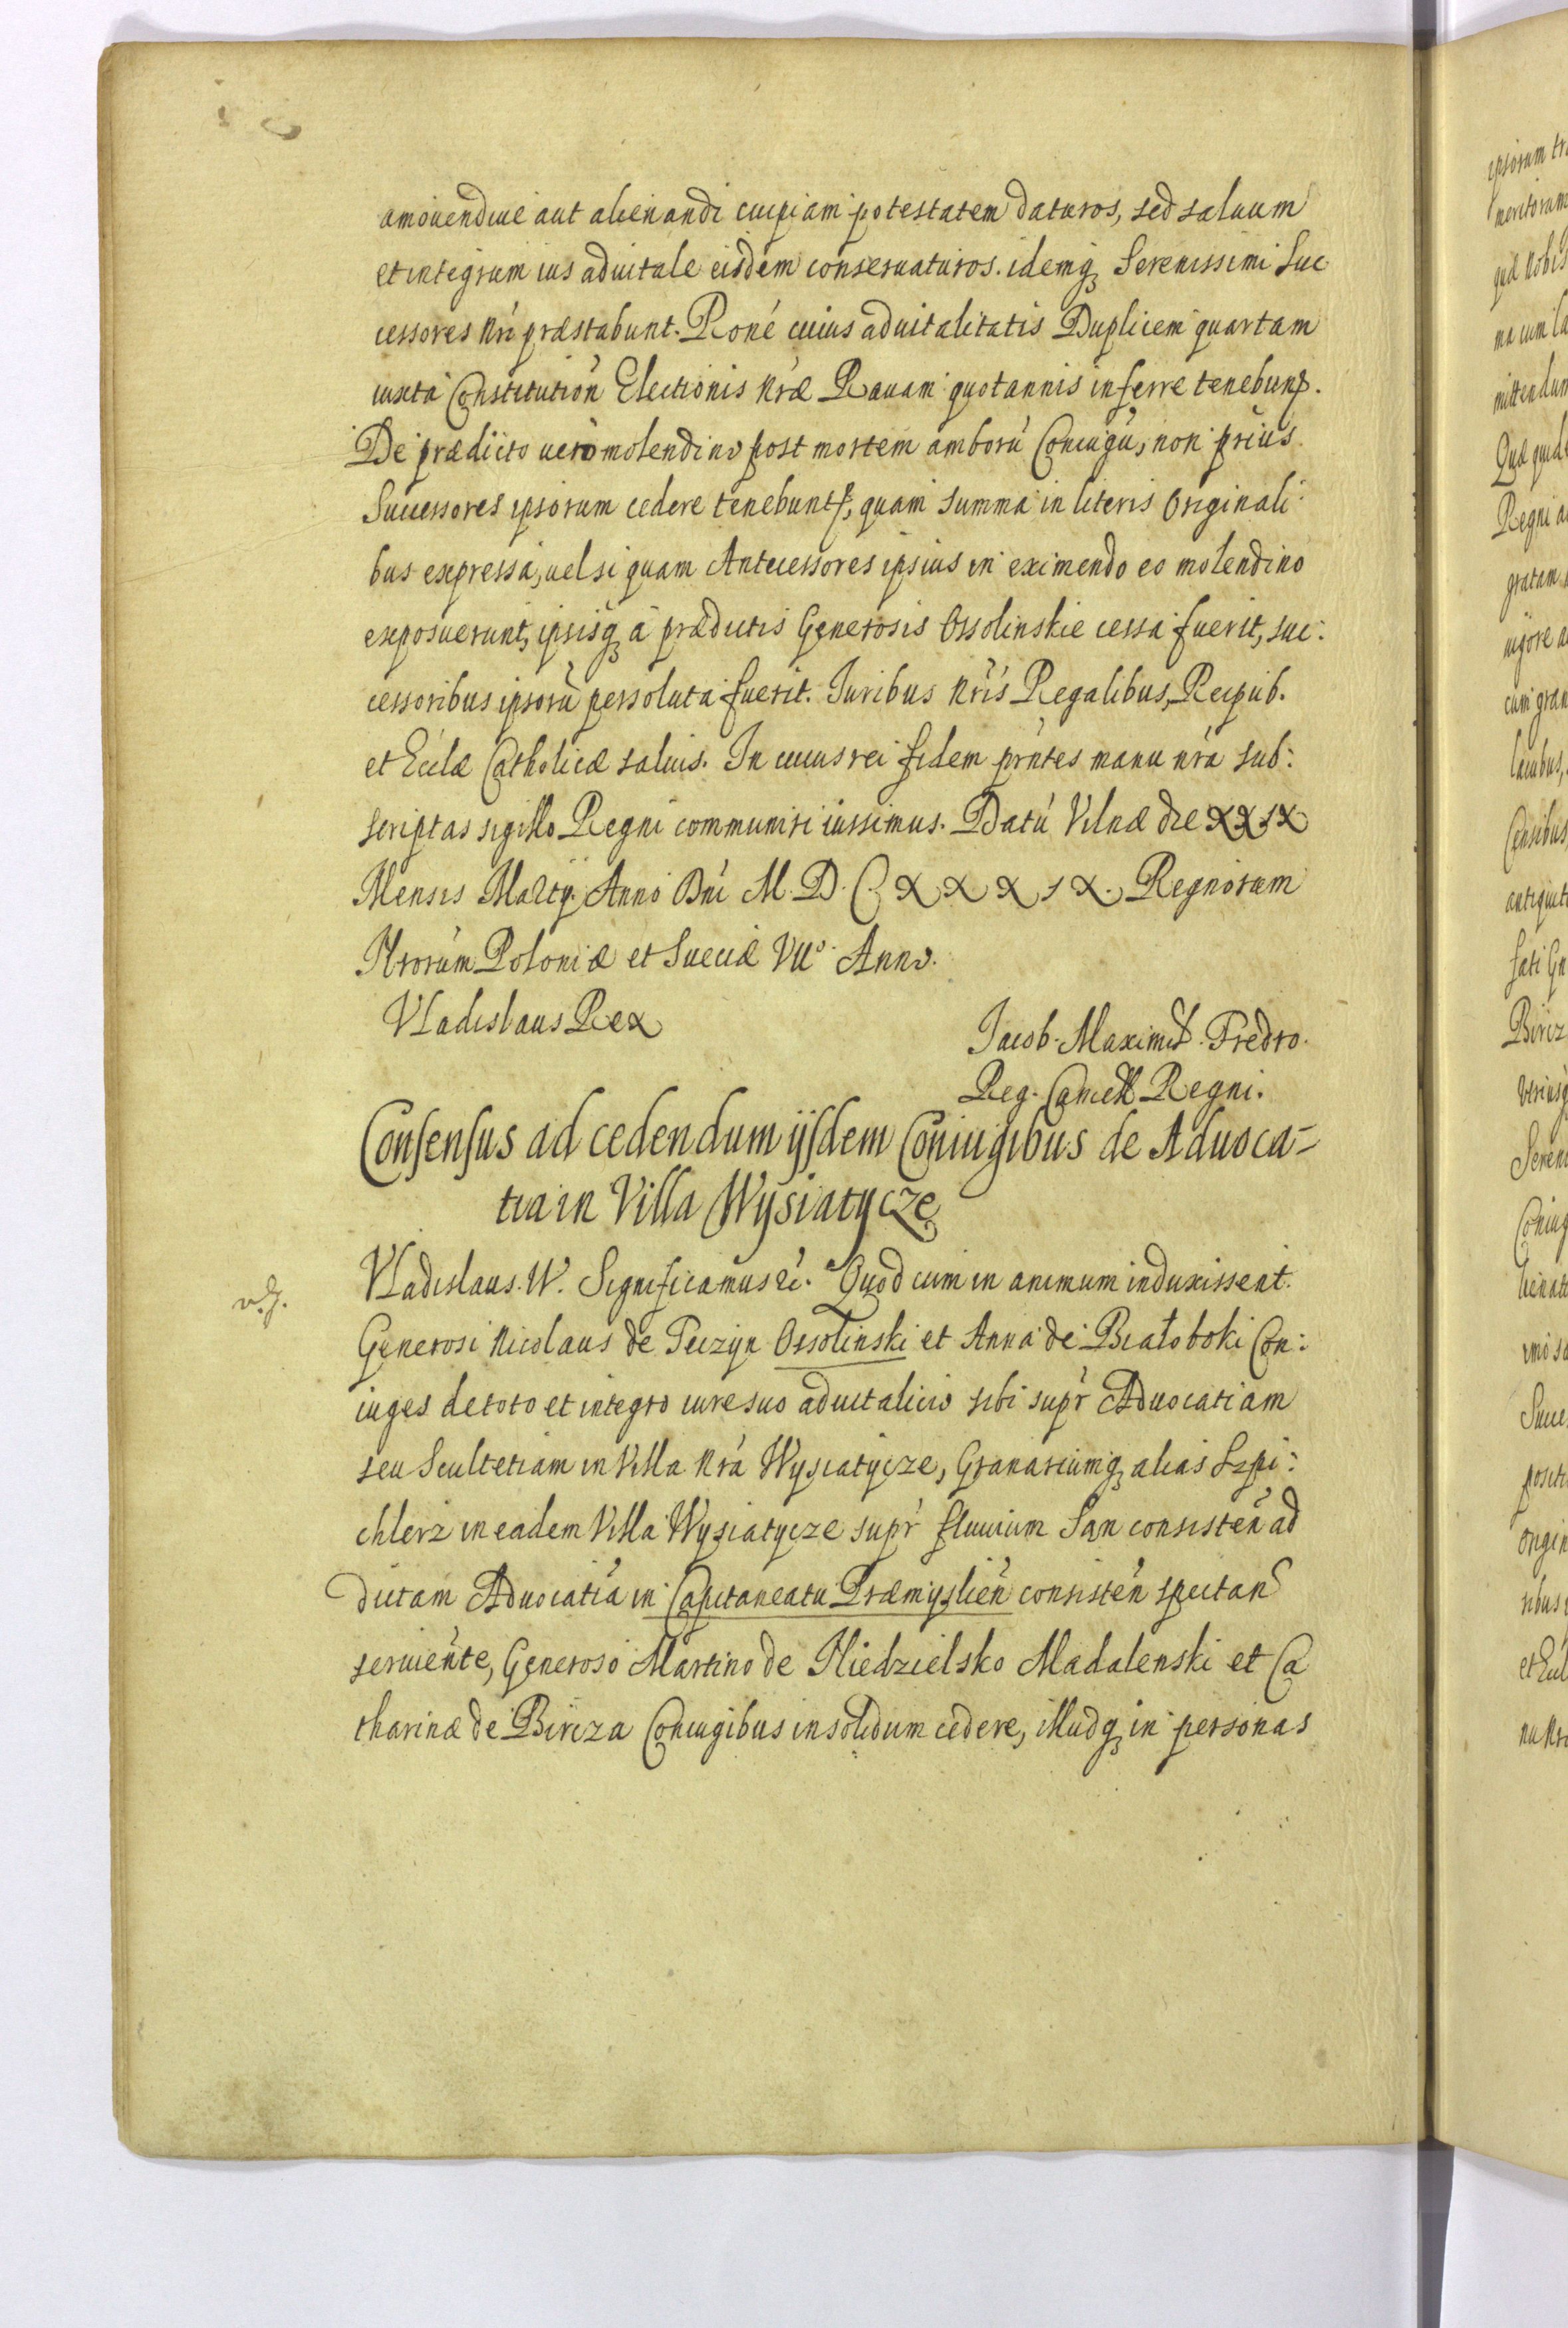 amouendiue aut alienandi cuipiam potestatem daturos, sed saluum
et integrum ius aduitale eisdem conseruaturos. idemq Serenissimi Suc
cessores nri præstabunt. Roné cuius aduitalitatis Duplicem quartam
iuxta Constitution Electionis nræ Rauam quotannis inferre tenebunt.
De prædicto uero molendino post mortem amborū Coniugū, non prius
Successores ipsorum cedere tenebunt, quam summa in literis Originali:
bus expressa, uel si quam Antecessores ipsius in eximendo eo molendino
exposuerunt, ipsisq a prædictis Generosis Ossolinskie cessa fuerit, suc:
cessoribus ipsorū persoluta fuerit. Iuribus nris Regalibus, Reipub.
et Eccle Catholicæ saluis. In cuius rei fidem prntes manu nra sub:
scriptas sigillo Regni communiri iussimus. Datū Vilnæ die XXIX
Mensis Martij. Anno Dni M. D. C XXXIX. Regnorum
Nrorum Poloniæ et Sueciæ VIIo. Anno.
Vladislaus Rex
Jacob. Maximil. Fredro.
Reg. Cancell Regni.
Consensus ad cedendum ijsdem Coniugibus de Aduoca-
tia in Villa Wysiatycze
v.g.
Vladislaus. IV. Significamus &c. Quod cum in animum induxissent.
Generosi Nicolaus de Teczyn Ossolinski et Anna de Białoboki Con:
iuges de toto et integro iure suo aduitalicio sibi supr Aduocatiam
seu Scultetiam in Villa nra Wysiatycze, Granariumq alias Szpi:
chlerz in eadem Villa Wysiatycze supr fluuium San consisten ad
dictam Aduocatia in Capitaneatu Præmyslien consisten spectan
seruiente, Generoso Martino de Niedzielsko Madalenski et Ca
tharinæ de Bircza Coniugibus in solidum cedere, illudq in personas